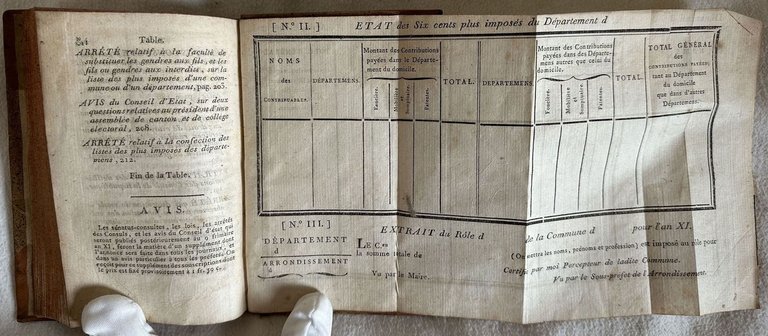 Table.
ARRÊTÉ relatif à la faculté de
substituer les gendres aux fils, et les
fils ou gendres aux interdits, sur la
liste des plus imposés d'une com-
mune ou d'un département, pag. 203.
AVIS du Conseil d'Etat, sur deux
questions relatives au président d'une
assemblée de canton et de collège
électoral, 208.
ARRÊTÉ relatif à la confection des
listes des plus imposés des départe-
mens, 212.
Fin de la Table.
AVIS.
Les sénatus-consultes, les lois, les arrêtés
des Consuls, et les avis du Conseil d'état qui
seront publiés postérieurement au
an XI, feront la matière d'un supplément dont
l'annonce sera faite dans tous les
dans un avis particulier à tous les préfets. On
reçoit pour ce supplément des souscriptions dont
le prix est fixé provisoirement à 1 fr.
[ N.º II. ]
ETAT des Six cents plus imposés du Département d
NOMS
des
CONTRIBUABLES.
DÉPARTEMENS.
Montant des Contributions
payées dans le Départe-
ment du domicile.
Foncière.
Mobilière
et
Somptuaire.
Patentes.
TOTAL.
DÉPARTEMENS.
Montant des Contributions
payées dans des Départe-
mens autres que celui du
domicile.
Foncière.
Mobilière
et
Somptuaire.
Patentes.
TOTAL.
TOTAL GÉNÉRAL
des
CONTRIBUTIONS PAYÉES,
tant au Département
du domicile
que dans d'autres
Départemens.
[ N.º III. ]
EXTRAIT du Rôle d de la Commune d pour l'an XI.
DÉPARTEMENT
d
ARRONDISSEMENT
d
LE C.en (On mettra les noms, prénoms et profession) est imposé au rôle pour
la somme totale de
Certifié par moi Percepteur de ladite Commune.
Vu par le Maire.
Vu par le Sous-préfet de l'Arrondissement.